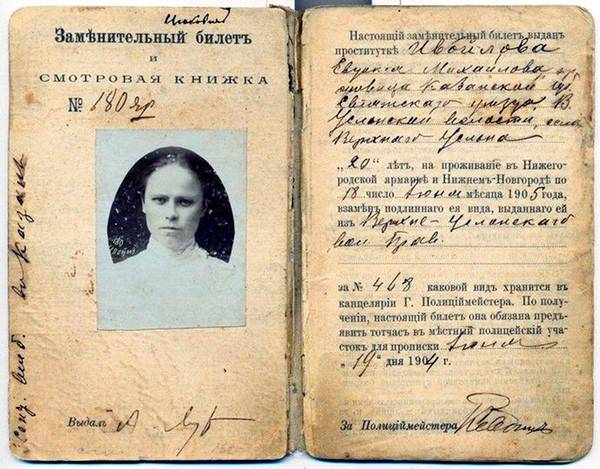 Замѣнительный билетъ
и
СМОТРОВАЯ КНИЖКА
№ 180 яр
Выдалъ
въ Казань
Настоящій замѣнительный билетъ выданъ
проституткѣ
Евдокія Михайлова
Казанской губ.
уѣзда, В.
Услонской волости, села
Верхняго Услона
„20" лѣтъ, на проживаніе въ Нижего-
родской ярмаркѣ и Нижнемъ-Новгородѣ по
18 число Іюня мѣсяца 1905 года,
взамѣнъ подлиннаго ея вида, выданнаго ей
изъ Верхне-Услонскаго
вол Прав.
за № 468 каковой видъ хранится въ
канцеляріи Г. Полиціймейстера. По полу-
ченіи, настоящій билетъ она обязана предъ-
явить тотчасъ въ мѣстный полицейскій уча-
стокъ для прописки Іюня
„19" дня 1904 г.
За Полиціймейстера